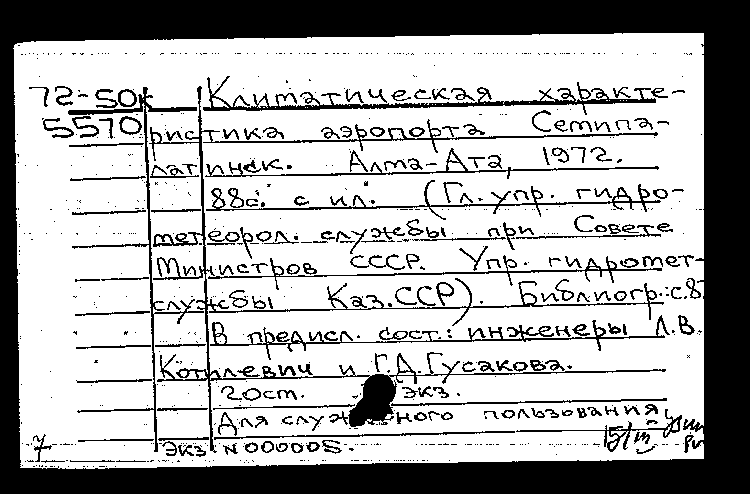 72-50к Климатическая характе-
5570 ристика аэропорта Семипа-
латинск. Алма-Ата, 1972.
88с. с ил. (Гл. упр. гидро-
метеорол. службы при Совете
Министров СССР. Упр. гидромет-
службы Каз.ССР). Библиогр.: с.8
В предисл. сост.: инженеры Л.В.
Котилевич и Г.Д.Гусакова.
20ст. экз.
Для служебного пользования
7 Экз N 000005. 15/III